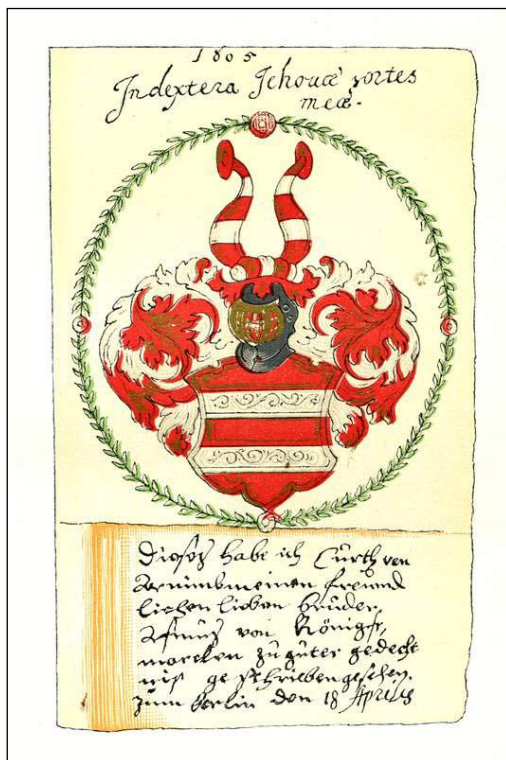 1605
In dextera Jehouæ sortes
meæ.
Dieses habe ich Cürth von
Arnimb meinen freund
lichen lieben bruder,
von Königs,
marcken zu güter gedecht
nis geschrieben geschehen.
Zum Berlin den 18 Aprilis